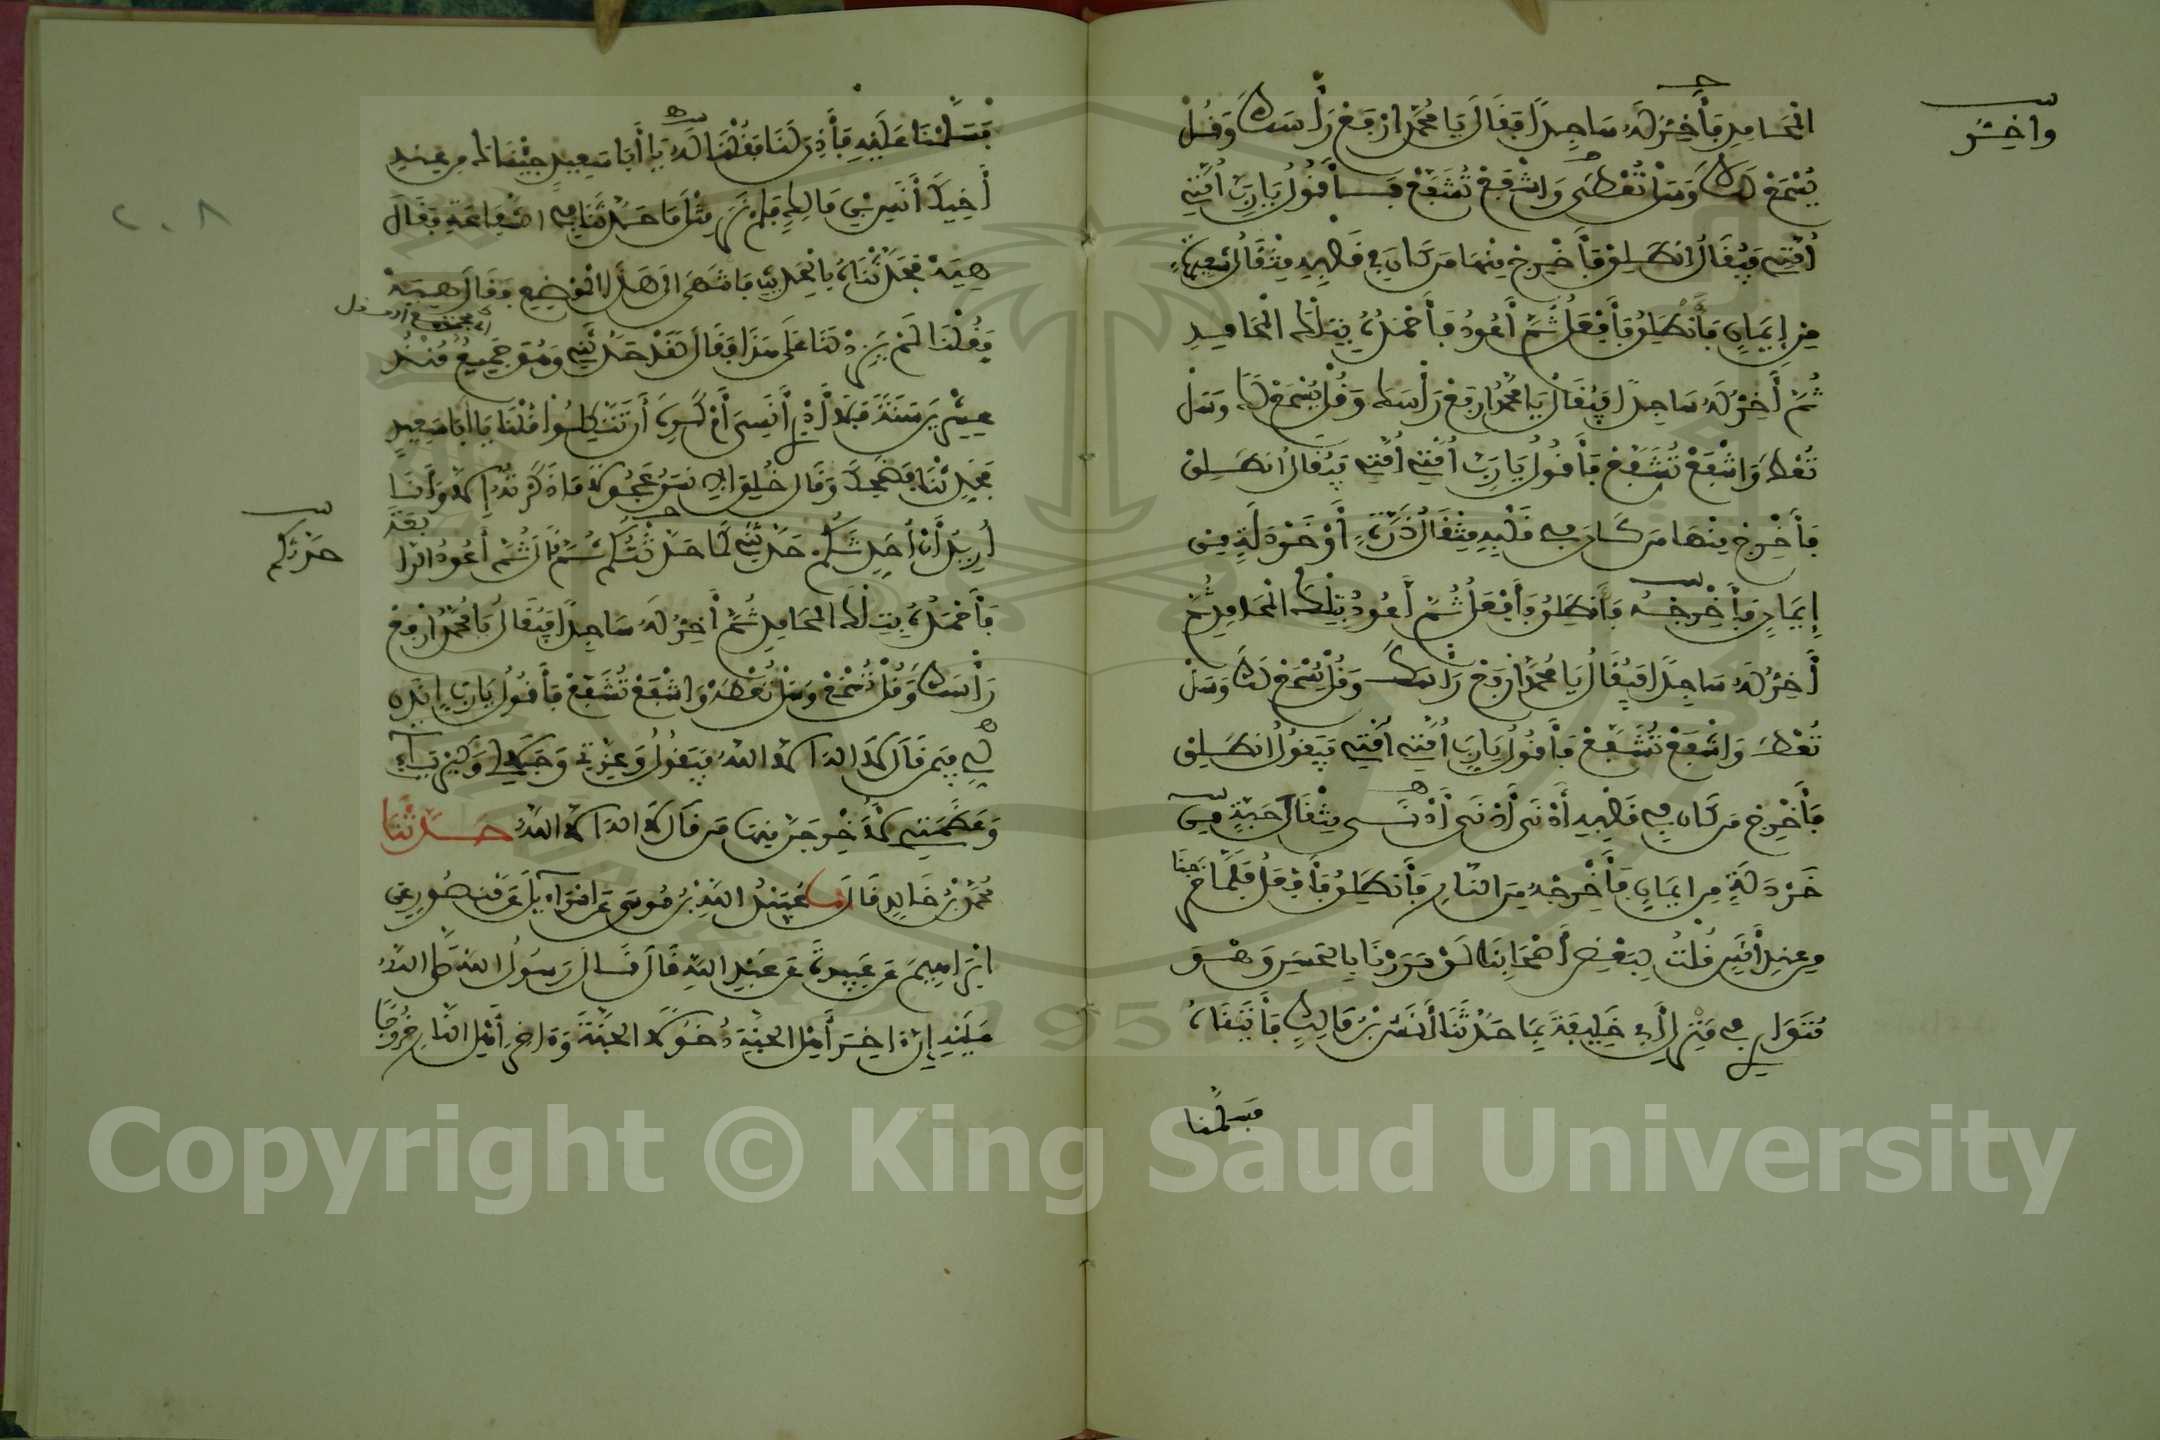 واخر
المحامد فأخر له ساجدا فقال يا محمد ارفع رأسك وقل
يسمع لك وسل تعطى واشفع تشفع فأقول يا رب أمتي
أمتي فيقال انطلق فأخرج منها من كان في قلبه مثقال شعيرة
من إيمان فأنطلق فأفعل ثم أعود فأحمده بتلك المحامد
ثم أخر له ساجدا فيقال يا محمد ارفع رأسك وقل يسمع لك وسل
تعط واشفع تشفع فأقول يا رب أمتي أمتي فيقال انطلق
فأخرج منها من كان في قلبه مثقال ذرة أو خردلة من
إيمان فأخرجه فأنطلق فأفعل ثم أعود بتلك المحامد ثم
أخر له ساجدا فيقال يا محمد ارفع رأسك وقل يسمع لك وسل
تعط واشفع تشفع فأقول يا رب أمتي أمتي فيقول انطلق
فأخرج من كان في قلبه أدنى أدنى أدنى مثقال حبة من
خردلة من ايمان فأخرجه من النار فأنطلق فأفعل فلما خرجنا
من عند أنس قلت لبعض أصحابنا لو مررنا بالحسن وهو
متوار في منزل أبي خليفة بما حدثنا أنس بن مالك فأتيناه
فسلمنا
فسلمنا عليه فأذن لنا فقلنا له يا أبا سعيد جئناك من عند
أخيك أنس بن مالك فلم نر مثل ما حدثنا في الشفاعة فقال
هيه فحدثناه بالحديث فانتهى الى هذا الموضع وقال هيه
فقلنا لم يزد لنا على هذا فقال لقد حدثني وهو جميع منذ
عشرين سنة فلا أدري أنسي أم كره أن تتكلوا قلنا يا أبا سعيد
فحدثنا فضحك وقال خلق الانسان عجولا ما ذكرته الا وأنا
أريد أن أحدثكم حدثني كما حدثكم به ثم قال ثم أعود الرابعة
حدثكم
فأحمده بتلك المحامد ثم أخر له ساجدا فيقال يا محمد ارفع
رأسك وقل تسمع وسل تعطه واشفع تشفع فأقول يا رب ائذن
لي فيمن قال لا اله الا الله فيقول وعزتي وجلالي وكبريائي
وعظمتي لأخرجن منها من قال لا اله الا الله حدثنا
محمد بن خالد قال عبيد الله بن موسى عن اسراءيل عن منصور عن
ابراهيم عن عبيدة عن عبد الله قال قال رسول الله صلى الله
عليه إن اخر أهل الجنة دخولا الجنة واخر أهل النار خروجا
٢٠٨